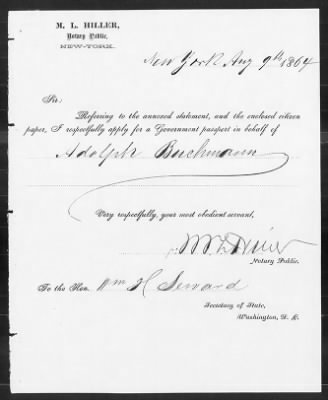 M. L. HILLER,
Notary Public,
NEW-YORK.
New York Aug 9th 1864
Sir:
Referring to the annexed statement, and the enclosed citizen
paper, I respectfully apply for a Government passport in behalf of
Adolph Buchmann
Very respectfully, your most obedient servant,
M L Hiller
Notary Public.
To the Hon. Wm H. Seward
Secretary of State,
Washington, D. C.